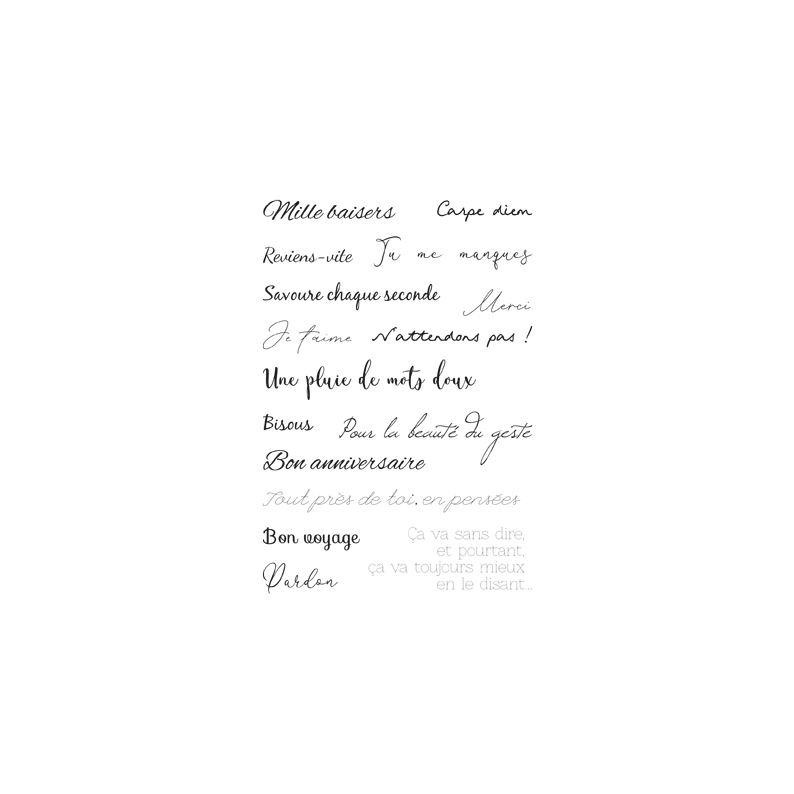 Mille baisers
Carpe diem
Reviens-vite
Tu me manques
Savoure chaque seconde
Merci
Je t'aime
N'attendons pas !
Une pluie de mots doux
Bisous
Pour la beauté du geste
Bon anniversaire
Tout près de toi, en pensées
Bon voyage
Ça va sans dire,
et pourtant,
ça va toujours mieux
en le disant...
Pardon